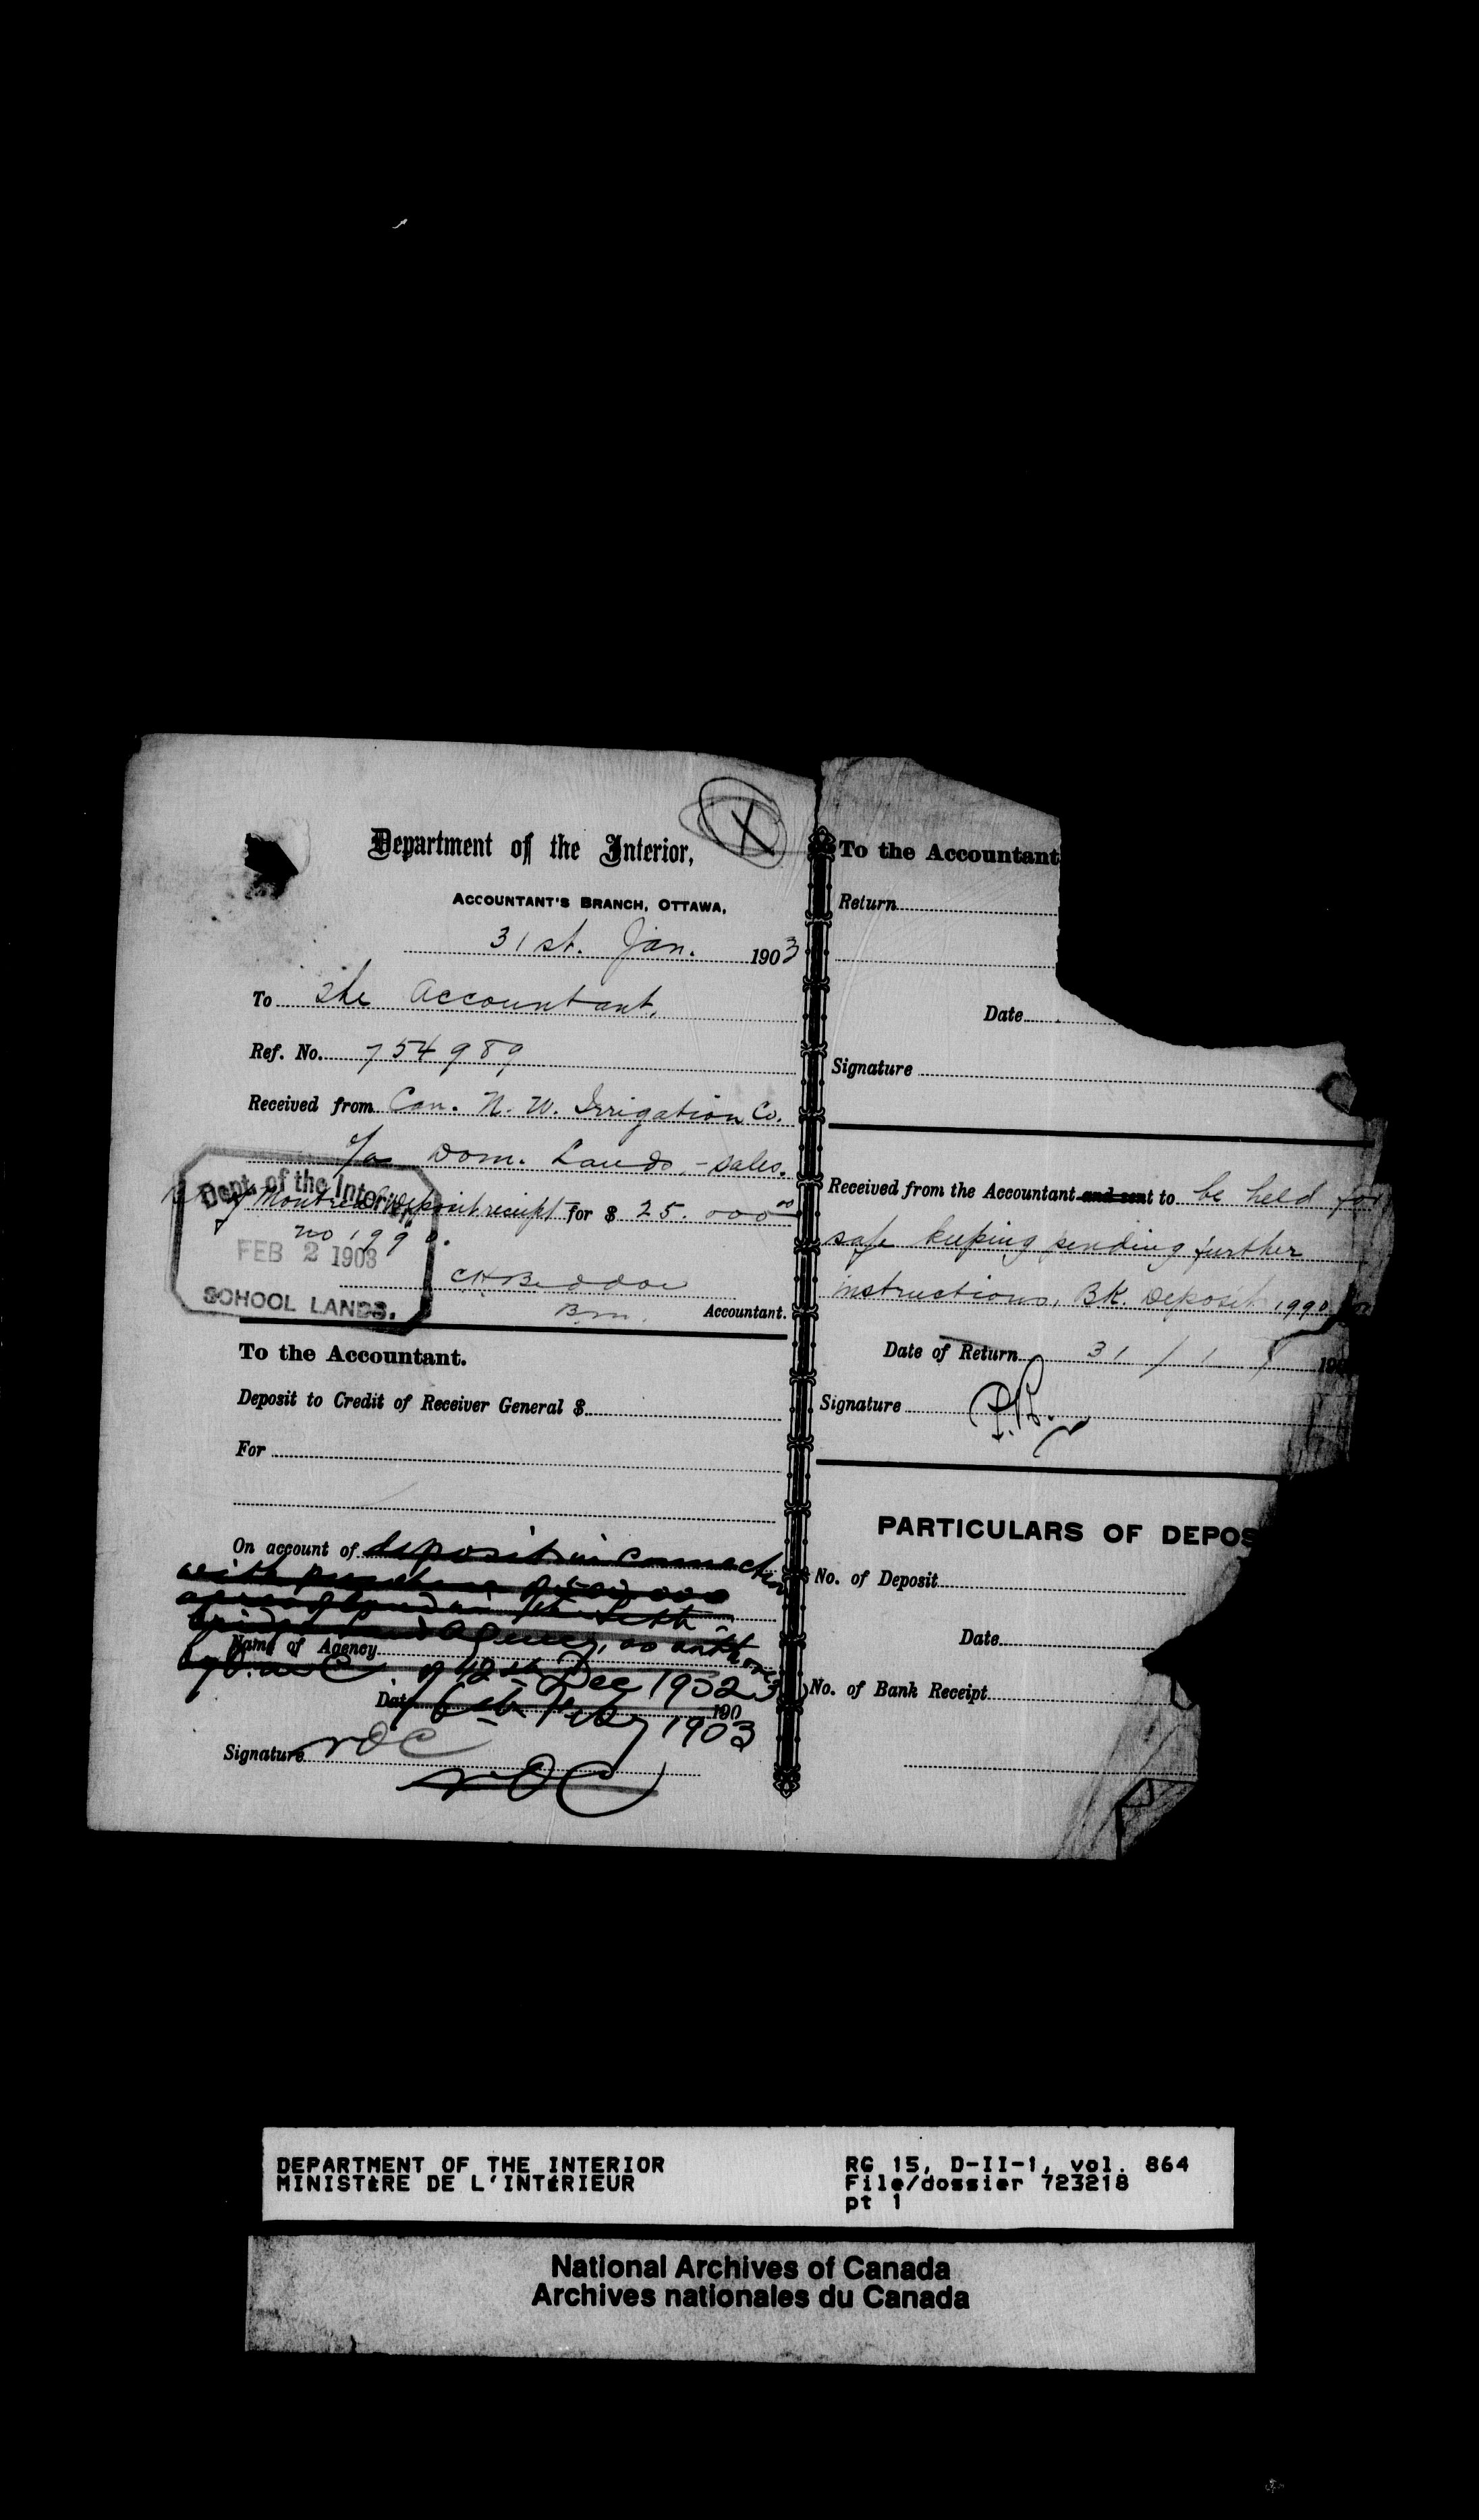 X
Department of the Interior,
ACCOUNTANT'S BRANCH, OTTAWA,
31st. Jan. 1903
To The Accountant,
Ref. No. 754989
Received from Can. N. W. Irrigation Co.
o/a Dom. Lands, - Sales.
Bk of Montreal Deposit receipt for $ 25.000 00
no 1990.
Dept. of the Interior
FEB 2 1903
SCHOOL LANDS.
C H Beddoe
Accountant.
To the Accountant.
Deposit to Credit of Receiver General $
For
On account of deposit in connection
with purchase of 500,000
acres of land in the Leth-
bridge Land Agency, as authorized
Name of Agency
by O. in C. of 12th Dec 1902
Date 190
6th Feby 1903
Signature NOC
NOC
To the Accountant
Return
Date
Signature
Received from the Accountant and sent to be held for
safe keeping pending further
instructions, BK. Deposit 1990
Date of Return 31 / 1 / 190
Signature
PARTICULARS OF DEPOS
No. of Deposit
Date
No. of Bank Receipt
DEPARTMENT OF THE INTERIOR
MINISTÈRE DE L'INTÉRIEUR
RG 15, D-II-1, vol. 864
File/dossier 723218
pt 1
National Archives of Canada
Archives nationales du Canada